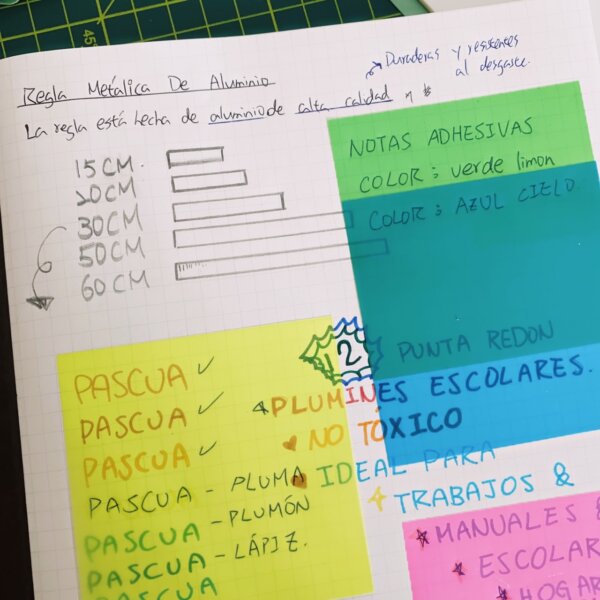 45
Regla Metálica De Aluminio
Duraderas y resistentes
al desgaste.
La regla está hecha de aluminio de alta calidad y
15 CM.
20 CM
30 CM
50 CM
60 CM
NOTAS ADHESIVAS
COLOR : verde limon
COLOR : AZUL CIELO.
12
PUNTA REDON
PLUMINES ESCOLARES.
NO TÓXICO
IDEAL PARA
TRABAJOS &
MANUALES &
ESCOLAR
HOGAR
PASCUA ✓
PASCUA ✓
PASCUA ✓
PASCUA - PLUMA
PASCUA - PLUMÓN
PASCUA - LÁPIZ.
PASCUA